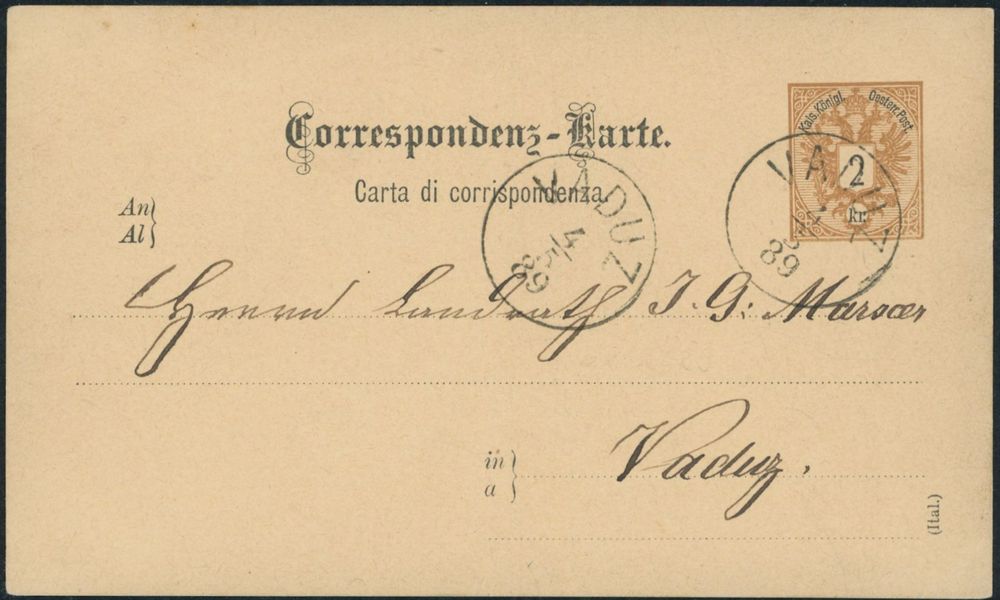 Kais. Königl. Oesterr. Post.
2
kr.
Correspondenz-Karte.
Carta di corrispondenza.
VADUZ
4/5
89
VADUZ
4/5
89
An
Al
Herrn Landrath J. G: Marxer
in
a
Vaduz.
(Ital.)